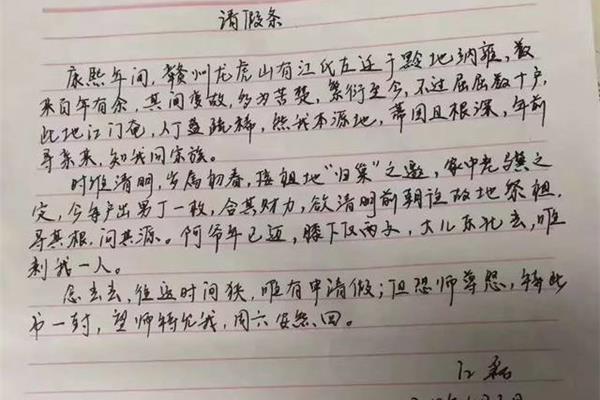 请假条
康熙年间，赣州龙虎山有江氏左迁于黔地纳雍，数
来百年有余，其间变故，多为苦楚，繁衍至今，不过屈屈数十户，
此地江门奄，人丁益疏稀，然我本源地，蒂固且根深，年前
寻亲来，知我同宗族。
时维清明，岁属初春，接祖地“归巢”之邀，家中老之
定，今每户出男丁一枚，合其财力，欲清明前朝诣故地祭祖，
寻其根，问其源。阿爷年已迈，膝下仅两子，大儿东北去，唯
剩我一人。
念去去，往返时间狭，唯有申请假；但恐师尊怒，特此
书一封，望师特允我，周六安然回。
江磊